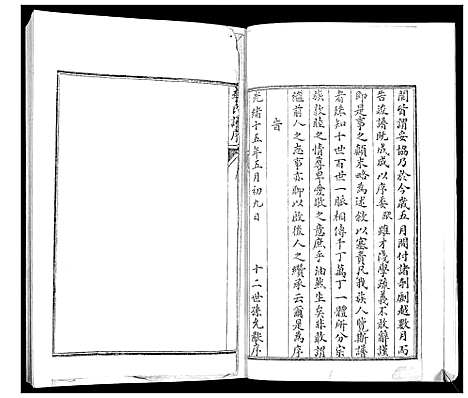 閤省謂妥協乃於今歲五月間付諸剞劂越數月而
告竣譜既成以序委歆雖才淺學疏義不敢辭
即是事之顛末略為述敘以塞責凡我族人覽斯譜
者殊知十世百世一脈相傳千丁萬丁一體所分宗
族敦睦之情尊卑愛敬之意庶乎油然生矣非敢謂
繼前人之志事亦聊以啟後人之纘承云爾是為序
旹
光緒十五年五月初九日 十二世孫允歆序
氏譜序